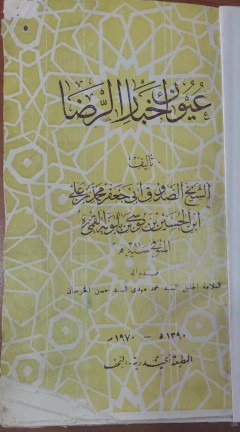 عيون أخبار الرضا
تأليف
الشيخ الصدوق أبي جعفر محمد بن علي
ابن الحسين بن موسى بن بابويه القمي
المتوفى سنة ٣٨١ هـ
قدم له
العلامة الجليل السيد محمد مهدي السيد حسن الخرسان
١٣٩٠ هـ - ١٩٧٠ م
المطبعة الحيدرية - النجف